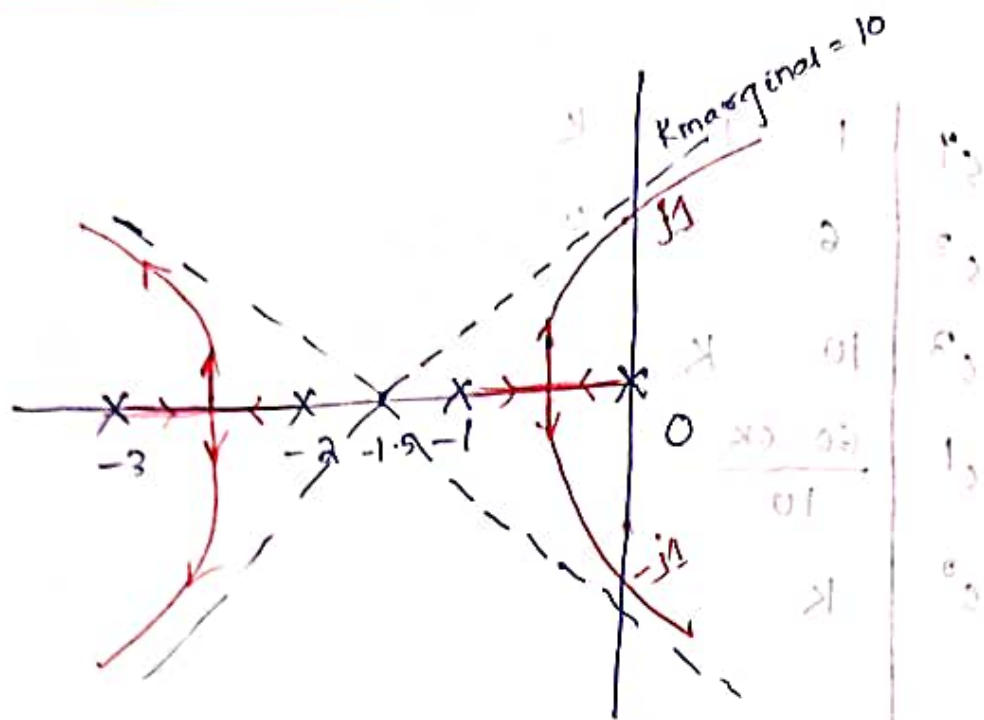 Kmarginal = 10
j1
-3
-2
-1.5
-1
0
-j1